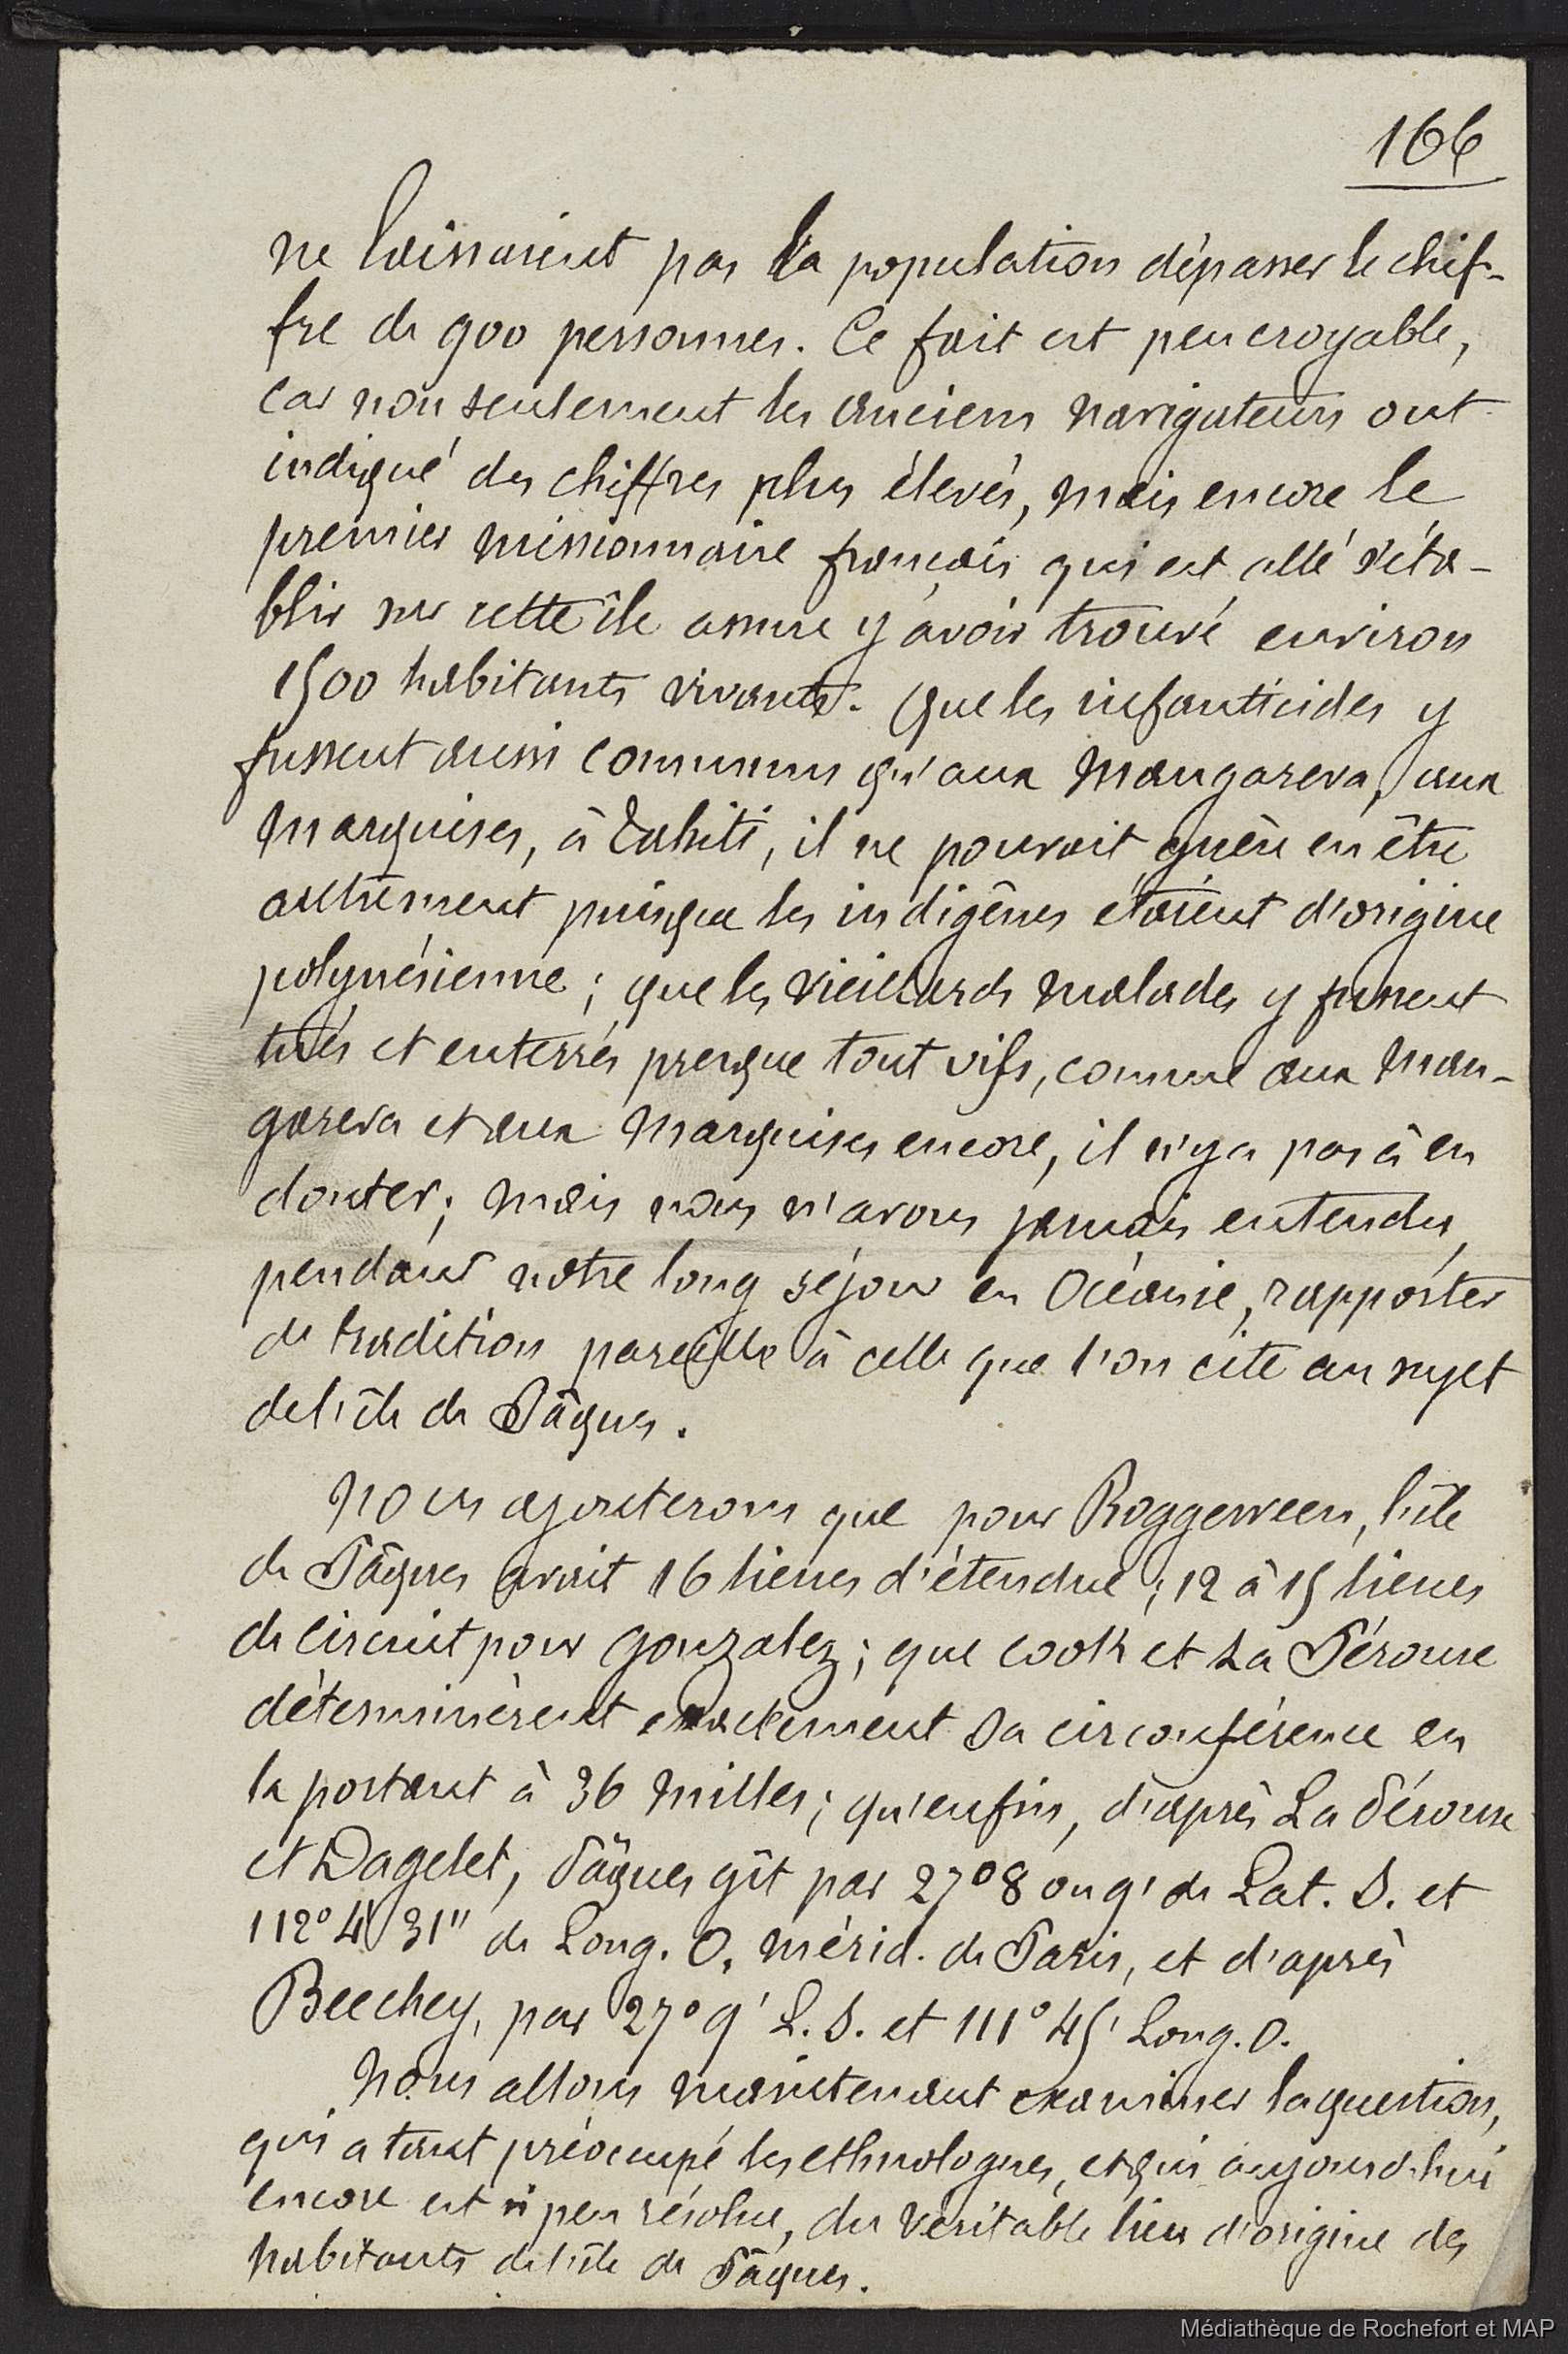 166
ne laissaient pas la population dépasser le chif-
fre de 900 personnes. Ce fait est peu croyable,
car non seulement les anciens navigateurs ont
indiqué des chiffres plus élevés, mais encore le
premier missionnaire français qui est allé s'éta-
blir sur cette île assure y avoir trouvé environ
1500 habitants vivants. Que les infanticides y
fussent aussi communs qu'aux Mangareva, aux
Marquises, à Tahiti, il ne pouvait guère en être
autrement puisque les indigènes étaient d'origine
polynésienne ; que les vieillards malades y fussent
tués et enterrés presque tout vifs, comme aux Man-
gareva et aux Marquises encore, il n'y a pas à en
douter ; mais nous n'avons jamais entendu,
pendant notre long séjour en Océanie, rapporter
de tradition pareille à celle que l'on cite au sujet
de l'île de Pâques.
Nous ajouterons que pour Roggeween, l'île
de Pâques avait 16 lieues d'étendue ; 12 à 15 lieues
de circuit pour Gonzalez ; que Cook et La Pérouse
déterminèrent exactement sa circonférence en
la portant à 36 milles ; qu'enfin, d'après La Pérouse
et Dagelet, Pâques gît par 27°8 ou 9' de Lat. S. et
112° 4' 31" de Long. O. mérid. de Paris, et d'après
Beechey, par 27° 9' L. S. et 111° 45' Long. O.
Nous allons maintenant examiner la question,
qui a tant préoccupé les ethnologues, et qui aujourd'hui
encore est si peu résolue, du véritable lieu d'origine des
habitants de l'île de Pâques.
Médiathèque de Rochefort et MAP